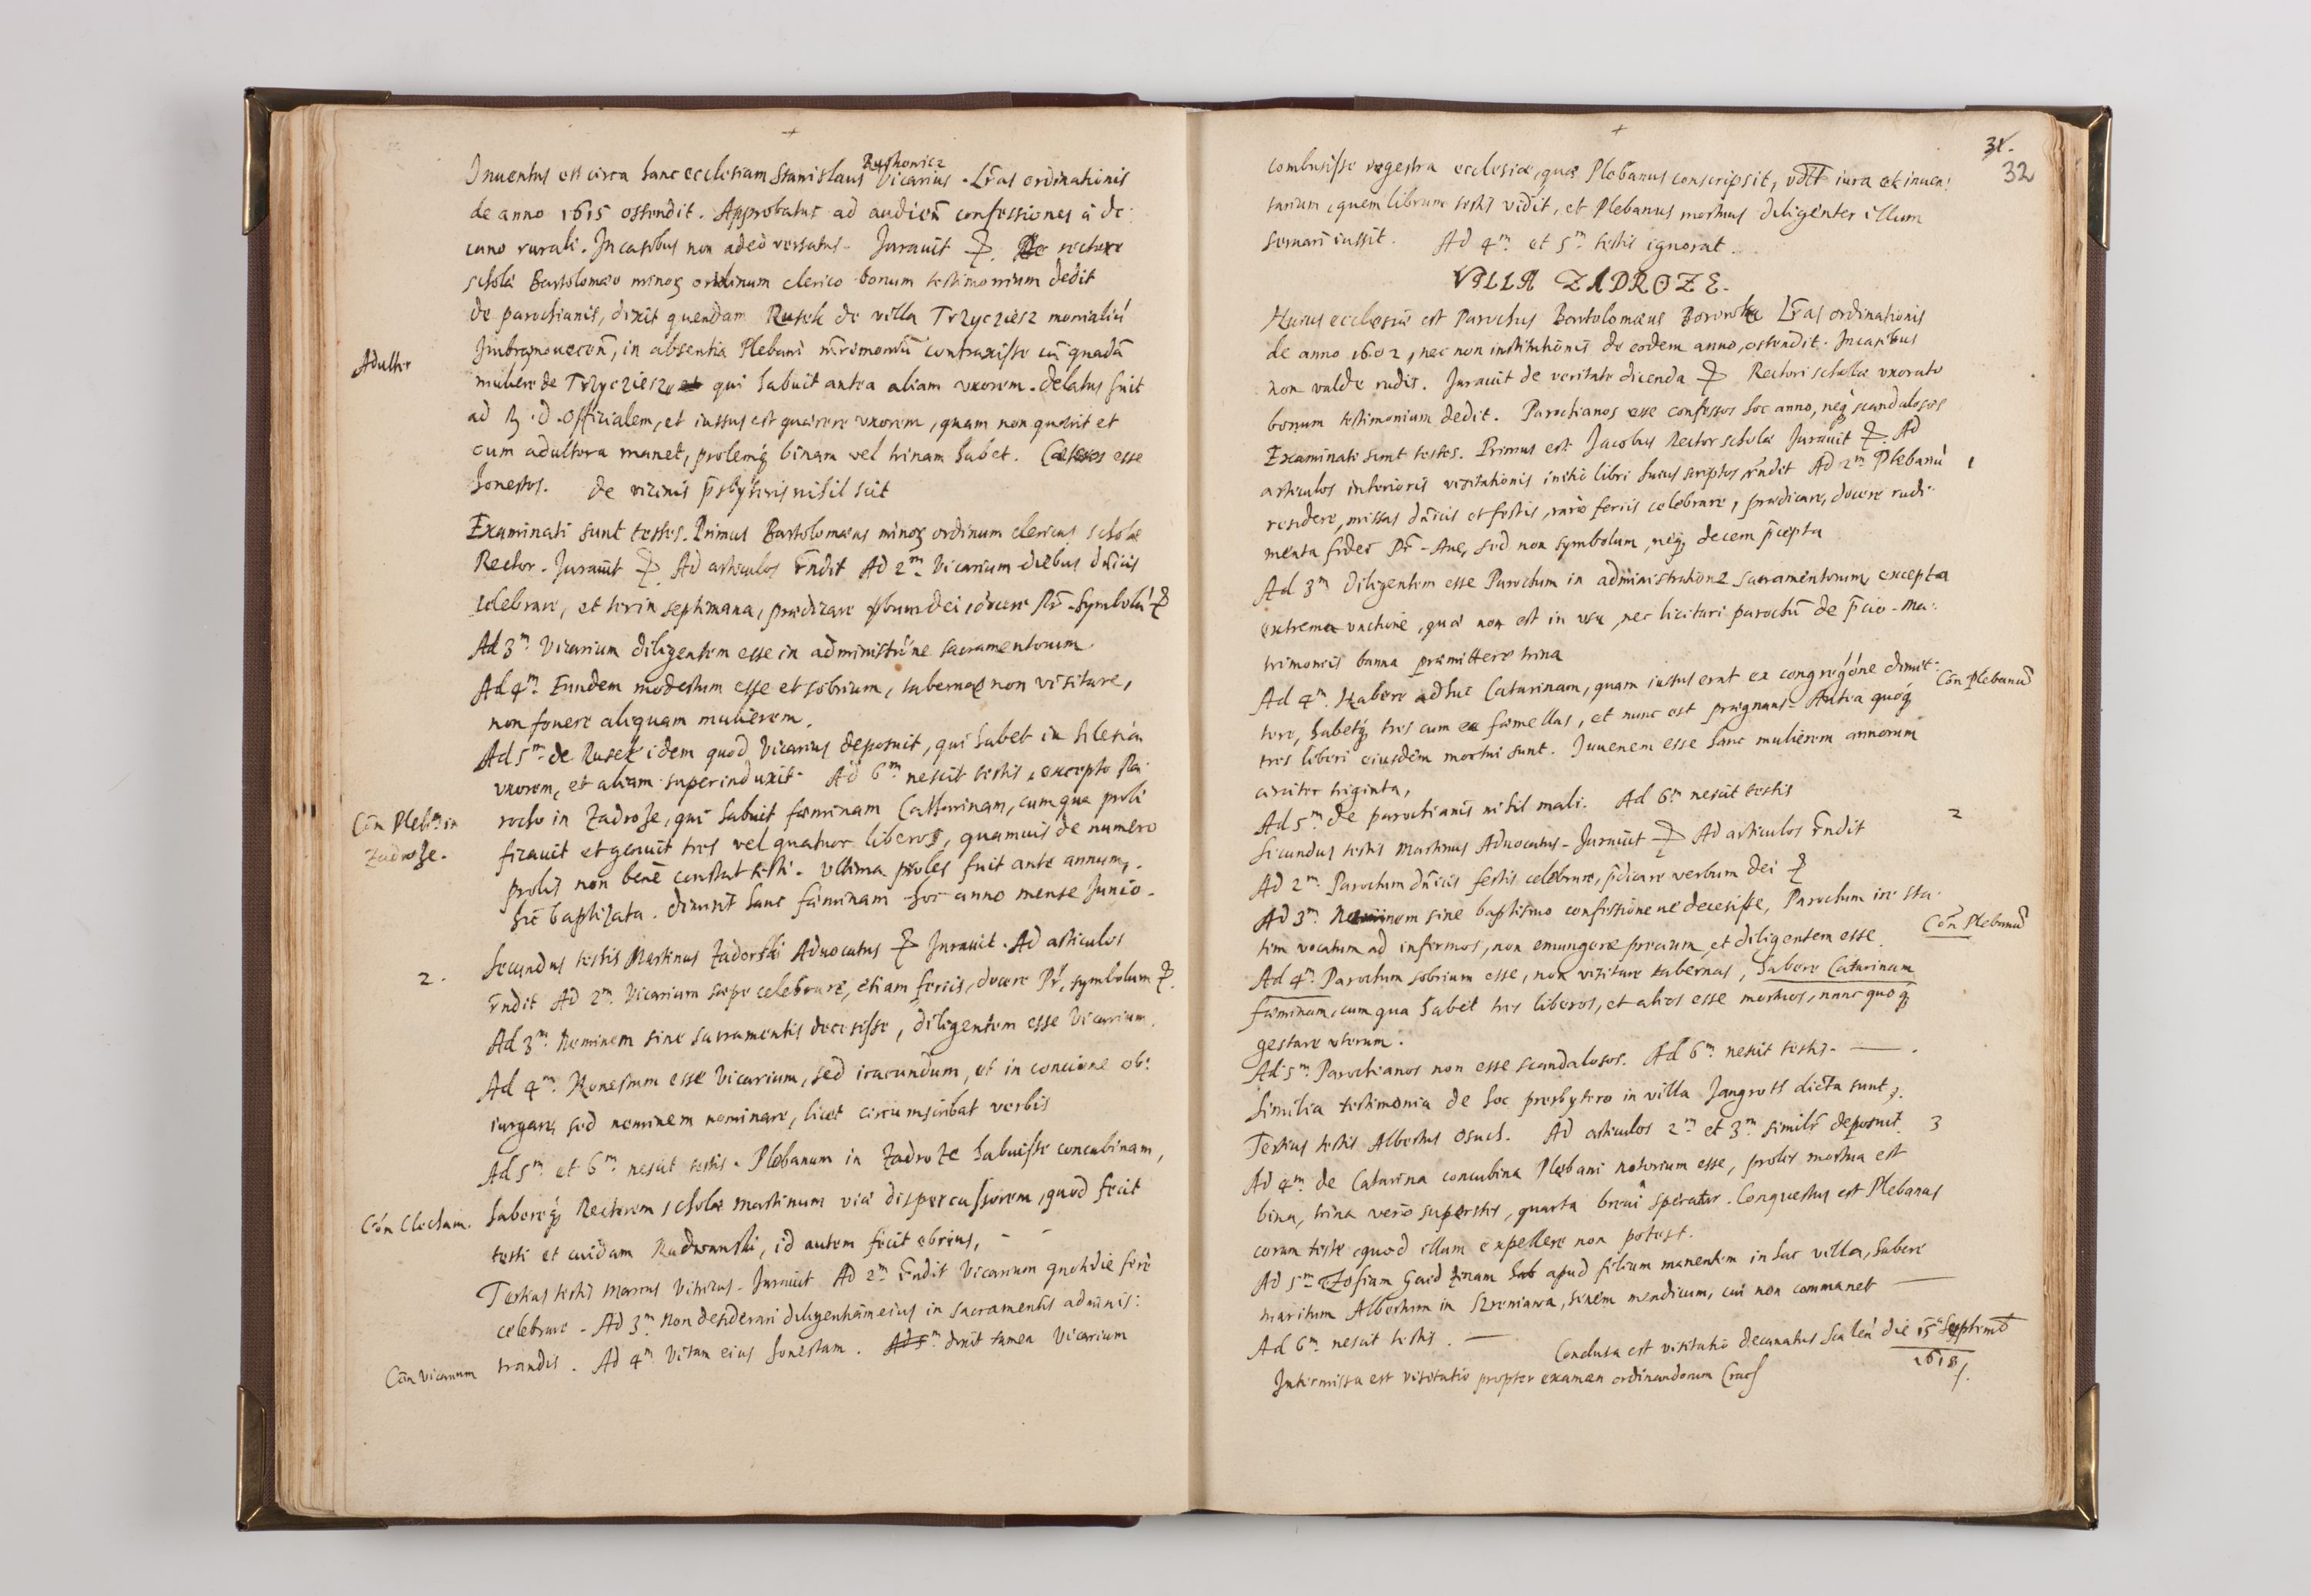 +
Ruskowicz
Inuentus est circa hanc ecclesiam Stanislaus Vicarius. Lr̃as ordinationis
de anno 1615 ostendit. Approbatus ad audien̄ confessiones à de:
cano rurali. In casibus non adeò versatus. Jurauit ⁊. rectore
scholæ Bartolomæo minoꝝ ordinum clerico bonum testimonium dedit
de parochianis, dixit quendam Rusek de villa Trzyciesz
Adulter
in absentia Plebani mr̃imoniũ contraxisse cũ quadã
muliere de Trzyciesz, qui habuit antea aliam vxorem. delatus fuit
ad R. D. Officialem, et iussus est quærere vxorem, quam non quærit et
cum adultera manet, prolemq́ binam vel trinam habet. Cæteros esse
honestos. de vicinis p̄sbyteris nihil scit
Examinati sunt testes. Primus Bartolomæus minoꝝ ordinum clericus scholæ
Rector. Jurauit ⁊. Ad articulos r̄ndit Ad 2ᵐ Vicarium diebus dn̄icis
celebrare, et ter in septimana, prædicare verbum dei, docere Pr̃. Symbolũ ⁊
Ad 3ᵐ Vicarium diligentem esse in administr̃one sacramentorum.
Ad 4ᵐ Eundem modestum esse et sobrium, tabernas non visitare,
non fouere aliquam mulierem.
Ad 5ᵐ de Rusek idem quod Vicarius deposuit, qui habet in Silesia
vxorem, et aliam superinduxit. Ad 6ᵐ nescit testis, excepto Pa:
Cõn Pleb̃m in
Zadroże.
rocho in Zadroże, qui habuit fœminam Catherinam, cum qua proli
ficauit et genuit tres vel quatuor liberos, quamuis de numero
prolis non benè constat testi. Vltima proles fuit ante annum,
hic baptizata. dimisit hanc fœminam hoc anno mense Junio.
2.
Secundus testis Martinus Zadorski Aduocatus ⁊ Jurauit. Ad articulos
r̄ndit Ad 2ᵐ Vicarium sæpe celebrare, etiam feriis, docere Pr̃, symbolum ⁊.
Ad 3ᵐ Neminem sine sacramentis decesisse, diligentem esse Vicarium.
Ad 4ᵐ Honestum esse Vicarium, sed iracundum, et in concione ob:
iurgare, sed neminem nominare, licet circumscribat verbis
Ad 5ᵐ et 6ᵐ nescit testis. Plebanum in Zadroże habuisse concubinam,
Cõn Clecham.
habereq́ Rectorem scholæ Martinum viæ dispercussorem, quod fecit
testi et cuidam Radwanski, id autem fecit ebrius, - -
Tertius testis Marcus Vitricus. Jurauit. Ad 2ᵐ r̄ndit Vicarium quotidie ferè
celebrare. Ad 3ᵐ Non desiderari diligentiam eius in sacramentis adminis:
Cõn Vicarium
trandis. Ad 4ᵐ Vitam eius honestam. Ad 5ᵐ dixit tamen Vicarium
+
31.
32
combusisse regestra ecclesiæ, quæ Plebanus conscripsit, vdlt iura et inuen:
tarium, quem librum testis vidit, et Plebanus mortuus diligenter illum
seruari iussit. Ad 4ᵐ et 5ᵐ testis ignorat.
VILLA ZADROZE.
Huius ecclesiæ est Parochus Bartolomæus Lr̃as ordinationis
de anno 1602, nec non institutionis de eodem anno, ostendit. In casibus
non valde rudis. Jurauit de veritate dicenda ⁊ Rectori scholæ vxorato
bonum testimonium dedit. Parochianos esse confessos hoc anno, neq́ scandalosos
Examinati sunt testes. Primus est Jacobus Rector scholæ Jurauit ⁊. Ad
articulos interioris visitationis initio libri huius scriptos r̄ndit Ad 2ᵐ Plebanũ
1
residere, missas dn̄icis et festis, rarò feriis celebrare, prædicare, docere rudi:
menta fidei Pr̃. Aue, sed non symbolum, neq́ decem p̄cepta
Ad 3ᵐ diligentem esse Parochum in administratione sacramentorum, excepta
extrema vnctione, quæ non est in vsu, nec licitari parochũ de p̄cio. Ma:
trimoniis banna præmittere trina
Ad 4ᵐ Habere adhuc Catarinam, quam iussus erat ex congreg̃óne dimit:
Cõn Plebanũ
tere, habetq́ tres cum ea fœmellas, et nunc est prægnans. Antea quoq́
tres liberi eiusdem mortui sunt. Juuenem esse hanc mulierem annorum
circiter triginta,
Ad 5ᵐ de parochianis nihil mali. Ad 6ᵐ nescit testis
2
Secundus testis Martinus Aduocatus. Jurauit ⁊ Ad articulos r̄ndit
Ad 2ᵐ Parochum dn̄icis festis celebrare, p̄dicare verbum dei ⁊
Ad 3ᵐ Neminem sine baptismo confessione ve decesisse, Parochum ire sta:
Cõn Plebanũ
tim vocatum ad infirmos, non emungere precium, et diligentem esse.
Ad 4ᵐ Parochum sobrium esse, non visitare tabernas, habere Catarinam
fœminam, cum qua habet tres liberos, et alios esse mortuos, nunc quoq́
gestare vterum.
Ad 5ᵐ Parochianos non esse scandalosos. Ad 6ᵐ nescit testis. — .
Similia testimonia de hoc presbytero in villa Jangrott dicta sunt.
Tertius testis Albertus Osuch. Ad articulos 2ᵐ et 3ᵐ simil̃r deposuit.
3
Ad 4ᵐ de Catarina concubina Plebani notorium esse, proles mortua est
bina, trina verò superstes, quarta breui speratur. Conquestus est Plebanus
coram teste quod illam expellere non potest.
Ad 5ᵐ Zofiam apud filium manentem in hac villa, habere
maritum Albertum in Szreniawa, senem mendicum, cui non commanet —
Ad 6ᵐ nescit testis. —
Conclusa est visitatio decanatus Scalen̄ die 15 Septemb̃
1618.
Intermissa est visitatio propter examen ordinandorum Crac̃